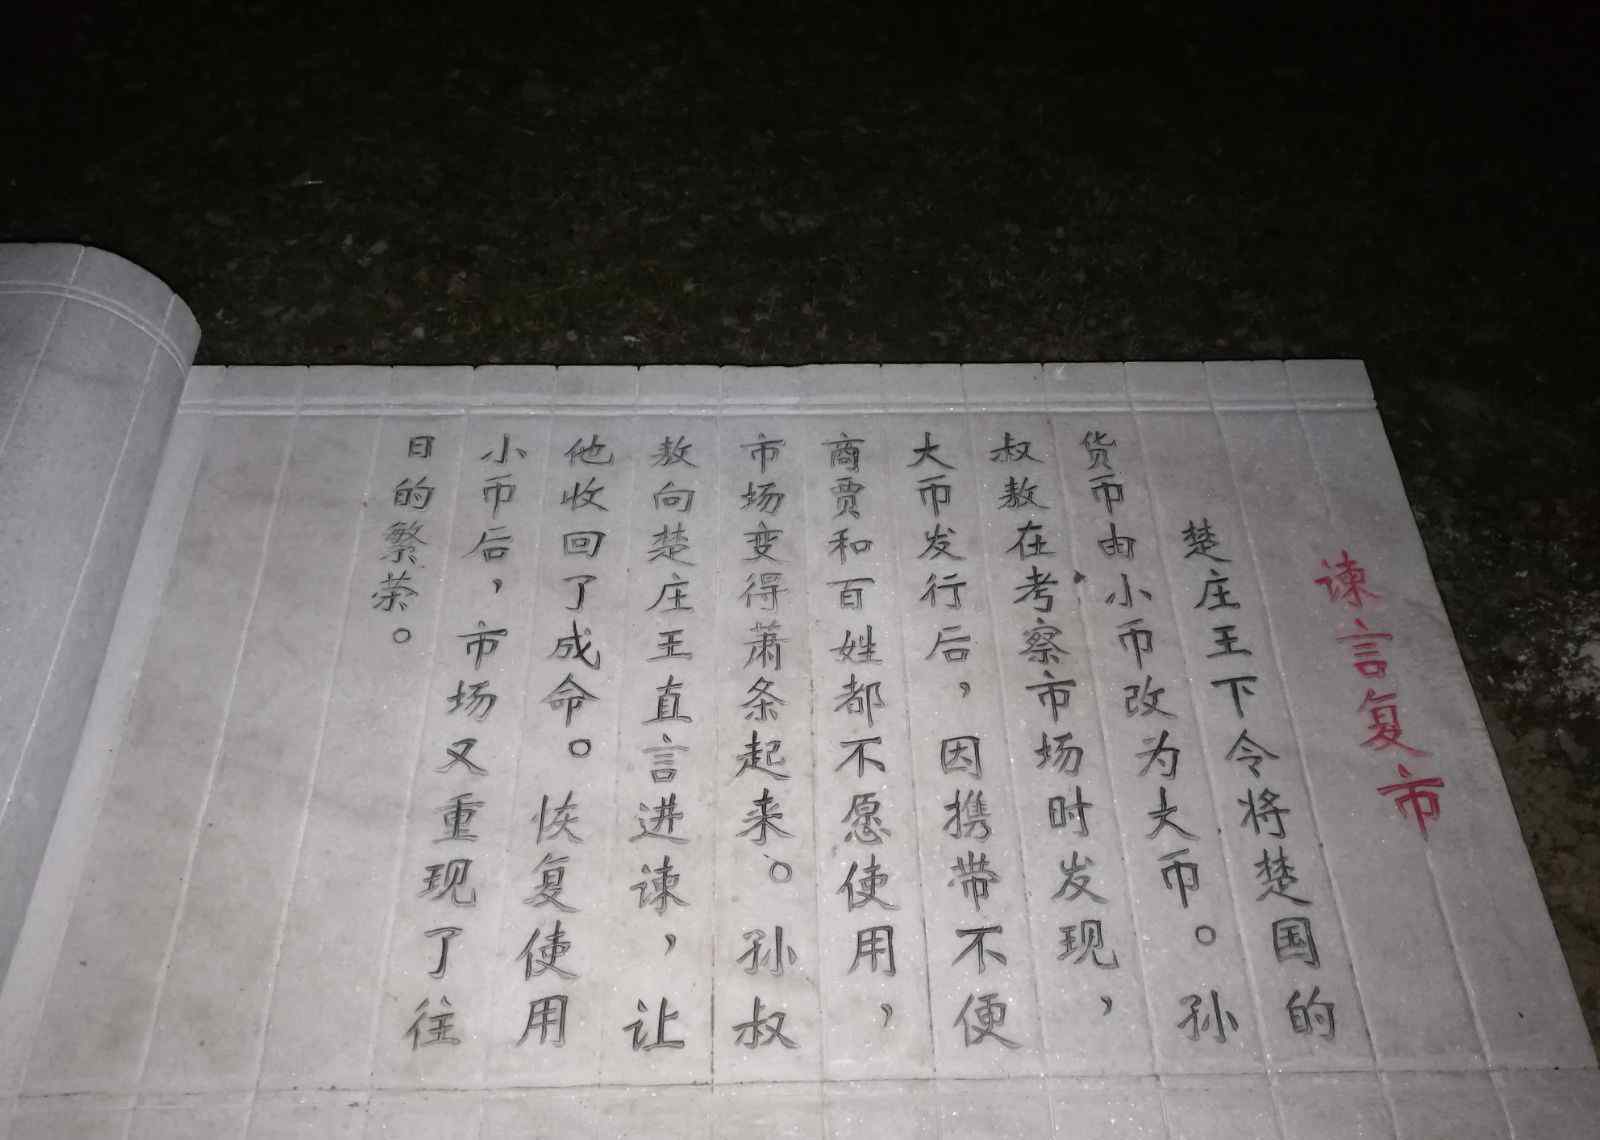 谏言复市
楚庄王下令将楚国的
货币由小币改为大币。孙
叔敖在考察市场时发现，
大币发行后，因携带不便
商贾和百姓都不愿使用，
市场变得萧条起来。孙叔
敖向楚庄王直言进谏，让
他收回了成命。恢复使用
小币后，市场又重现了往
日的繁荣。